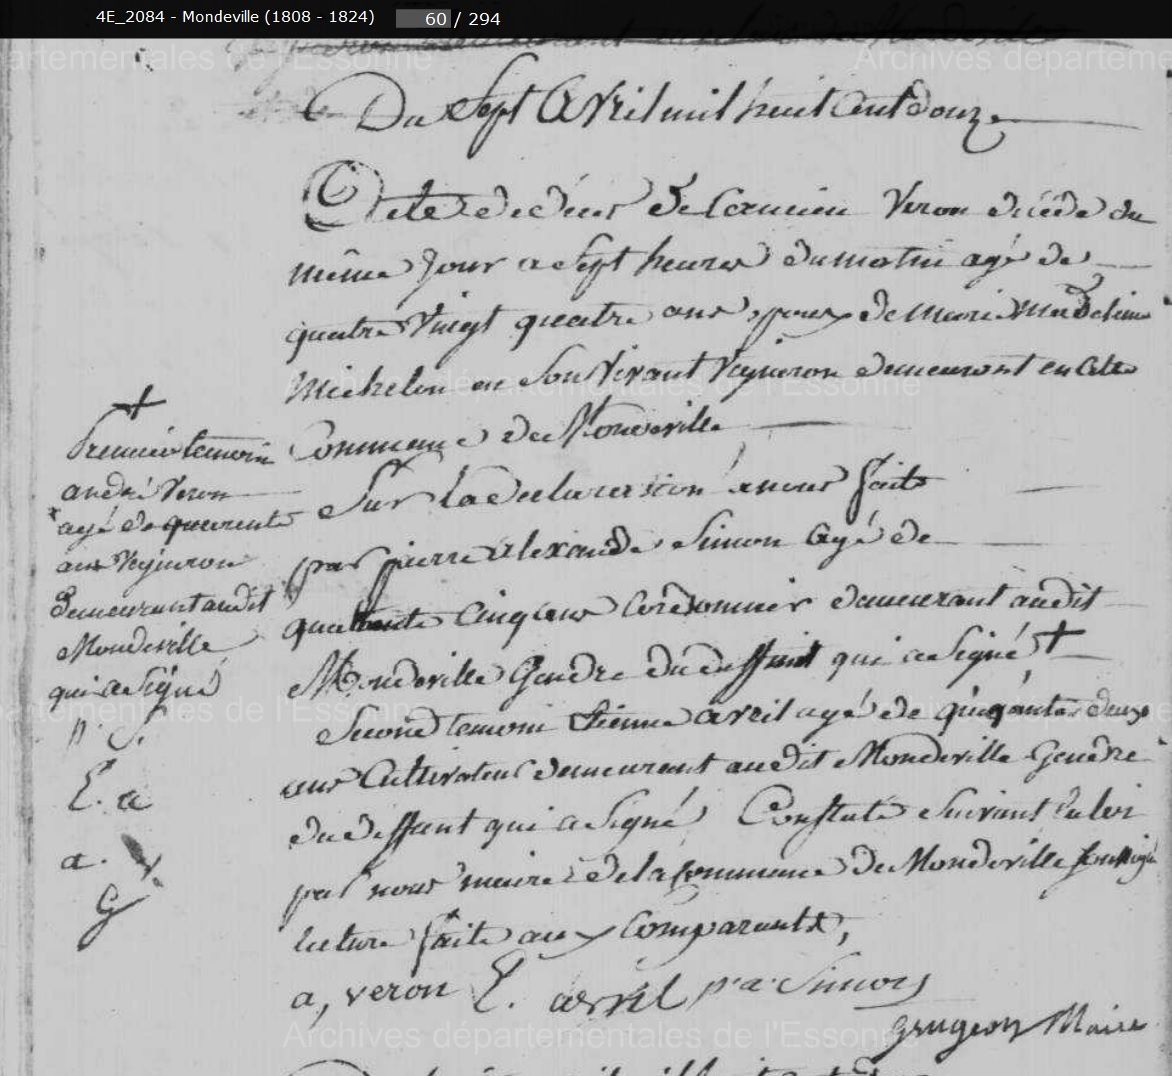 4E_2084 - Mondeville (1808 - 1824) 60 / 294
Archives départementales de l'Essonne
Du Sept avril mil huit Cent douze
acte de deces de Veron décédé du
même jour a Sept heures du matin agé de
quatre Vingt quatre ans epoux de Marie Madeleine
Michelon en Son Vivant Vigneron demeurant en cette
Commune de Mondeville
Sur la declaration a nous faite
par pierre alexandre Simon agé de
quarente Cinq ans Cordonnier demeurant audit
Mondeville Gendre du deffunt qui a Signé +
Second temoin Etienne avril agé de deux
ans Cultivateur demeurant audit Mondeville Gendre
du deffunt qui a Signé Constaté Suivant la loi
par nous maire de la Commune de Mondeville
lecture faite aux Comparants,
a, veron E. avril p. a. Simon
Grugeon Maire
+
Premier temoin
andré Veron
agé de quarente
ans Vigneron
demeurant audit
Mondeville
qui a Signé
p. S.
E. a
a. V.
G